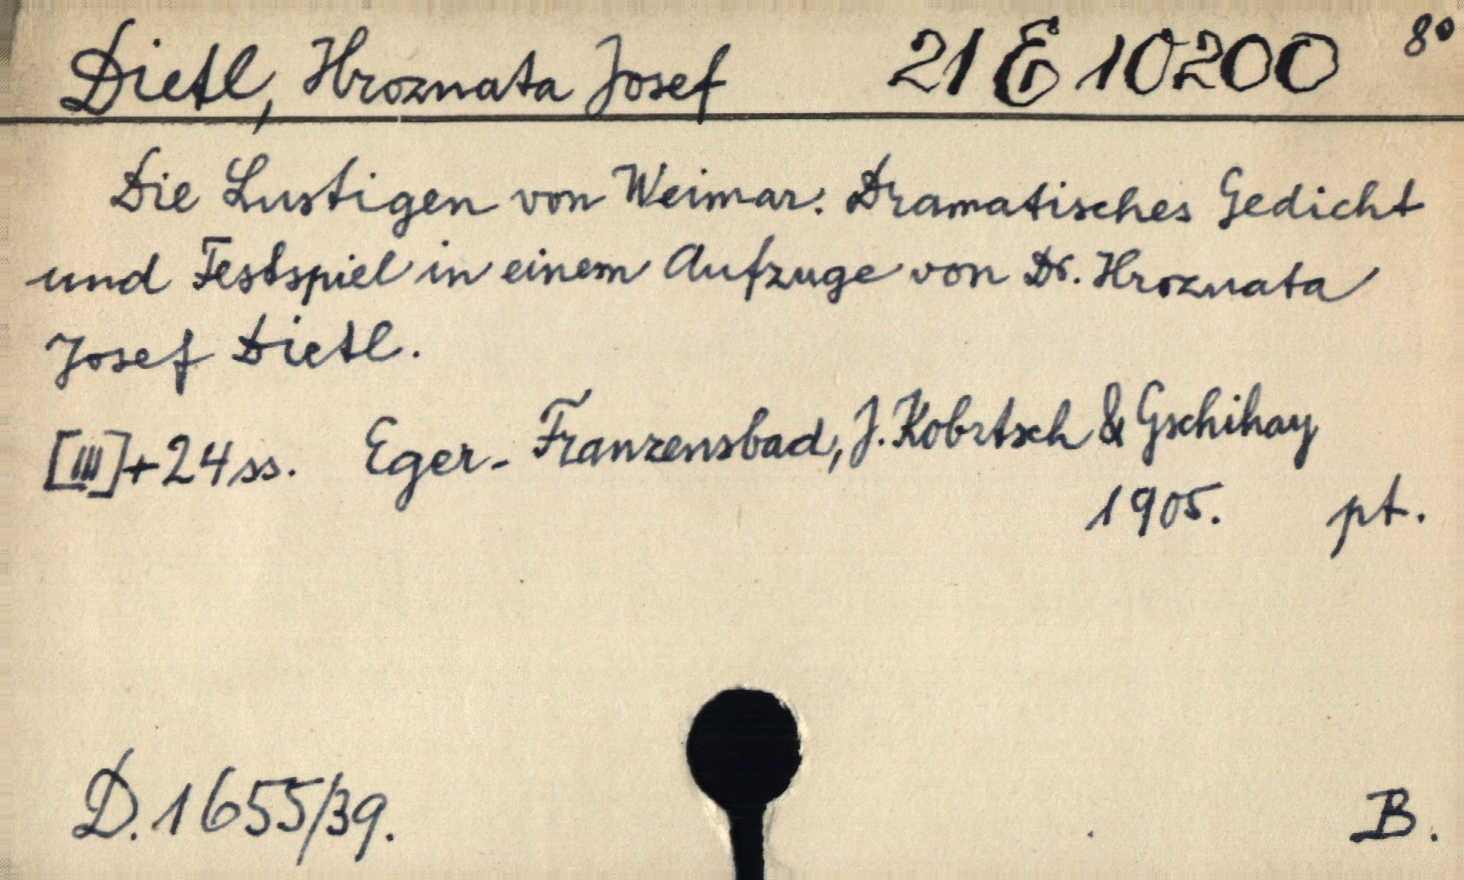 Dietl, Hroznata Josef 21 E 10200 8°
Die Lustigen von Weimar. Dramatisches Gedicht
und Festspiel in einem Aufzuge von Dr. Hroznata
Josef Dietl.
[III]+24ss. Eger-Franzensbad, J. Kobrtsch & Gschihay
1905. pt.
D. 1655/39. B.